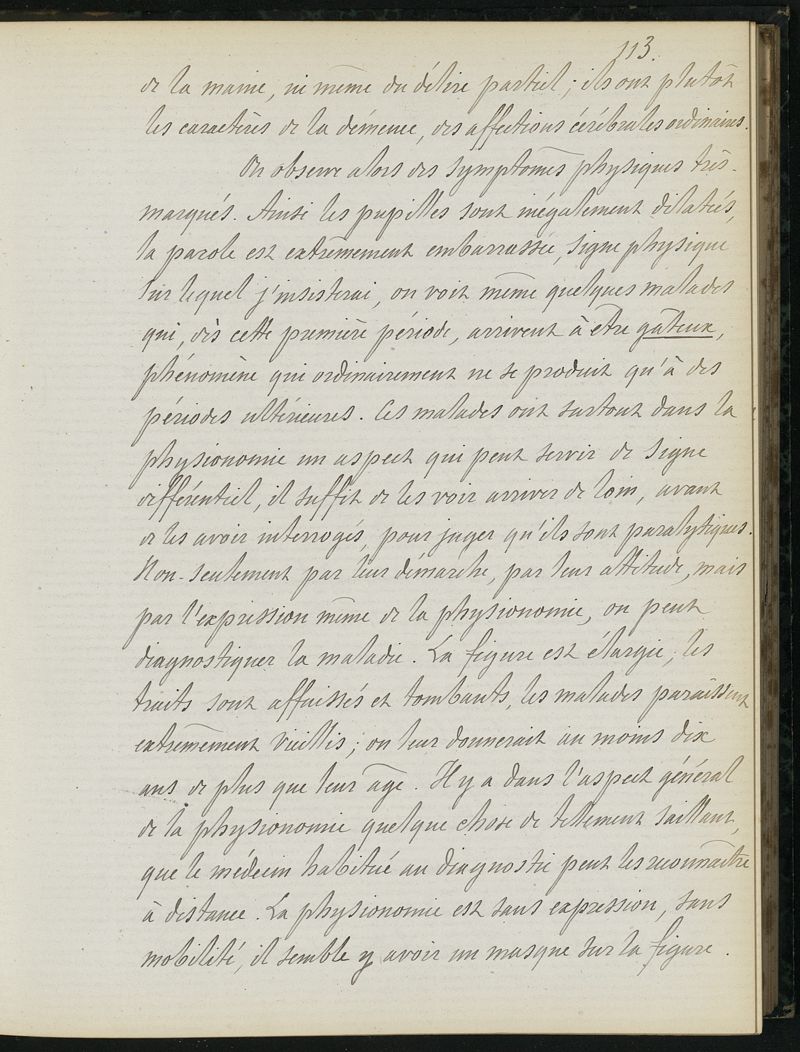 113.
de la manie, ni même du délire partiel ; ils ont plutôt
les caractères de la démence, des affections cérébrales ordinaires.
On observe alors des symptômes physiques très-
marqués. Ainsi les pupilles sont inégalement dilatées,
la parole est extrêmement embarrassée, signe physique
sur lequel j'insisterai, on voit même quelques malades
qui, dès cette première période, arrivent à être gâteux,
phénomène qui ordinairement ne se produit qu'à des
périodes ultérieures. Ces malades ont surtout dans la
physionomie un aspect qui peut servir de signe
différentiel, il suffit de les voir arriver de loin, avant
de les avoir interrogés, pour juger qu'ils sont paralytiques.
Non-seulement par leur démarche, par leur attitude, mais
par l'expression même de la physionomie, on peut
diagnostiquer la maladie. La figure est élargie, les
traits sont affaissés et tombants, les malades paraissent
extrêmement vieillis ; on leur donnerait au moins dix
ans de plus que leur âge. Il y a dans l'aspect général
de la physionomie quelque chose de tellement saillant,
que le médecin habitué au diagnostic peut les reconnaître
à distance. La physionomie est sans expression, sans
mobilité, il semble y avoir un masque sur la figure.